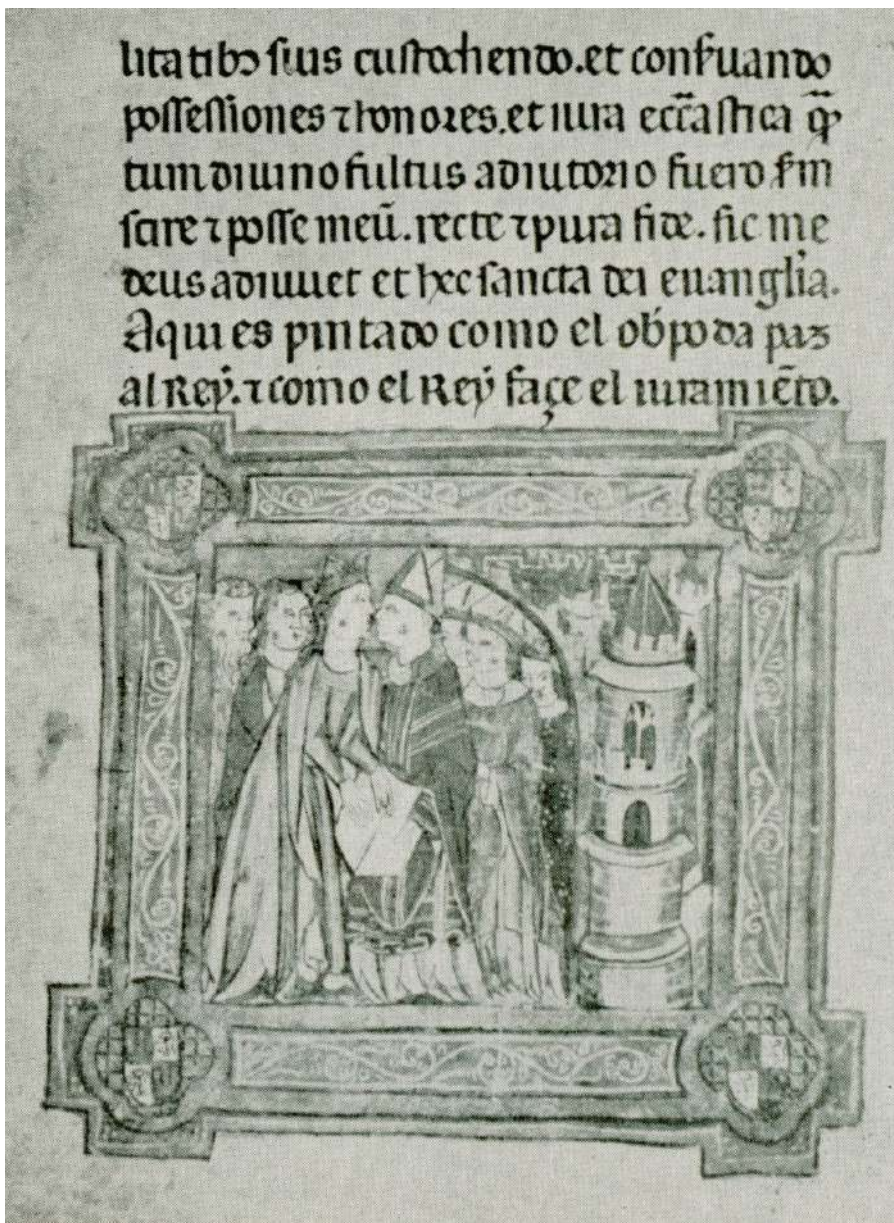 litatibꝫ suis custodiendo. et conẜuando
possessiones ⁊ honores. et iura ecc̄astica q̄ꝫ
tum diuino fultus adiutorio fuero ẜm
scire ⁊ posse meū. recte ⁊ pura fide. sic me
deus adiuuet et hec sancta dei euanglia.
Aqui es pintado como el obp̄o da paz
al Rey. ⁊ como el Rey façe el iuramiēto.